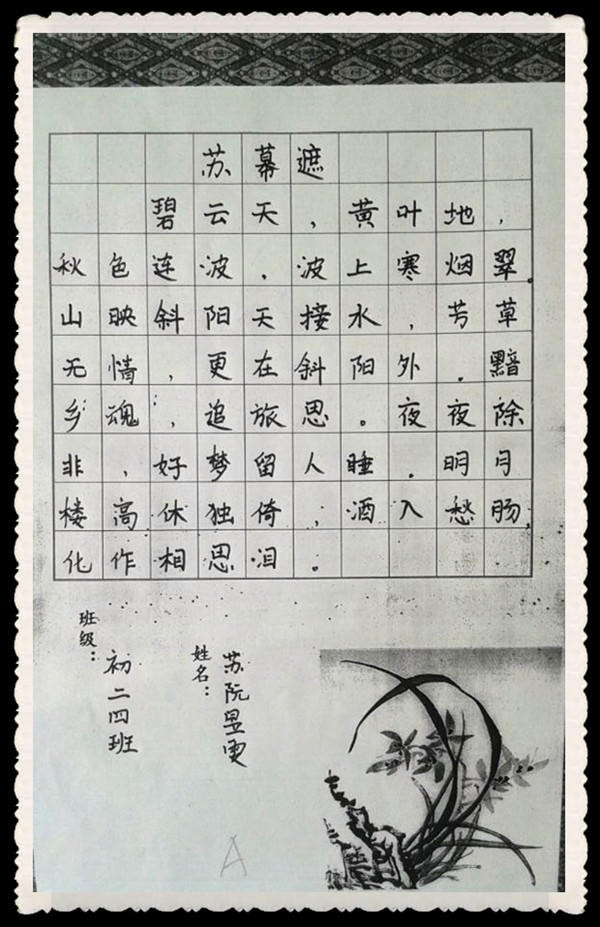 苏幕遮
碧云天，黄叶地，
秋色连波，波上寒烟翠。
山映斜阳天接水，芳草
无情，更在斜阳外。黯
乡魂，追旅思。夜夜除
非，好梦留人睡。明月
楼高休独倚，酒入愁肠，
化作相思泪。
班级：初二四班
姓名：苏阮昱
A